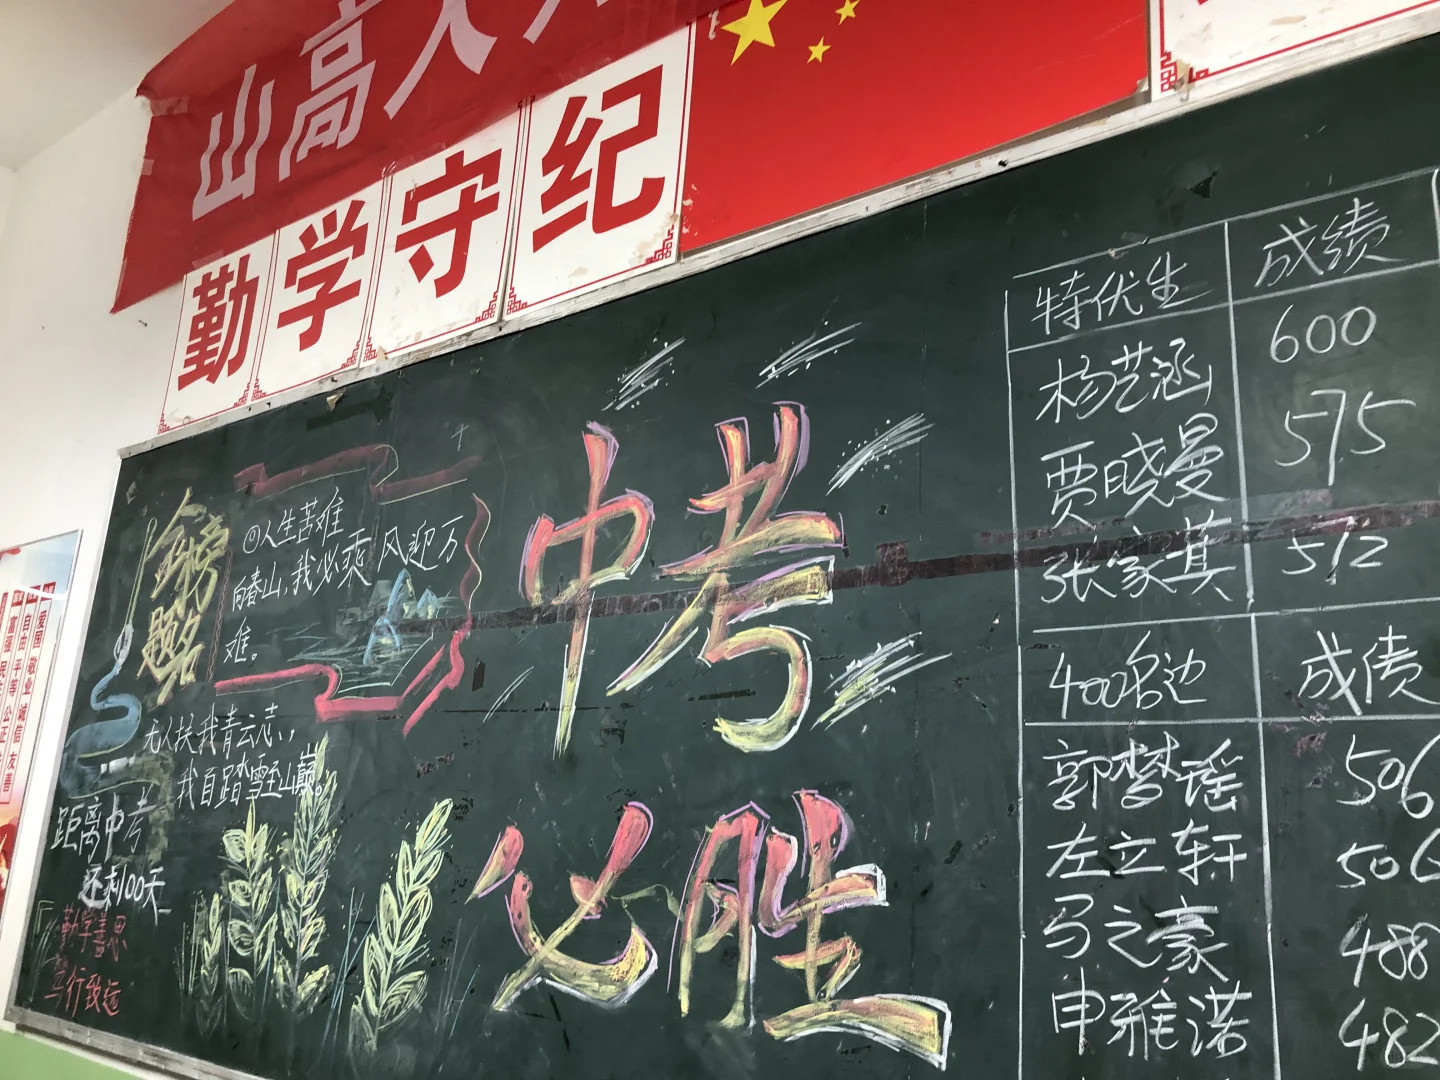 山高人
勤学守纪
金榜题名
①人生苦难
向春山，我必乘风迎万
难。
无人扶我青云志，
我自踏雪至山巅。
距离中考
还剩100天
勤学善思
笃行致远
中考
必胜
特优生 成绩
杨艺涵 600
贾晓曼 575
张家萁 512
400名边 成债
郭梦瑶 506
左立轩 506
马之豪 488
申雅诺 482
爱国 敬业 诚信 友善
自由 平等 公正
富强 民主